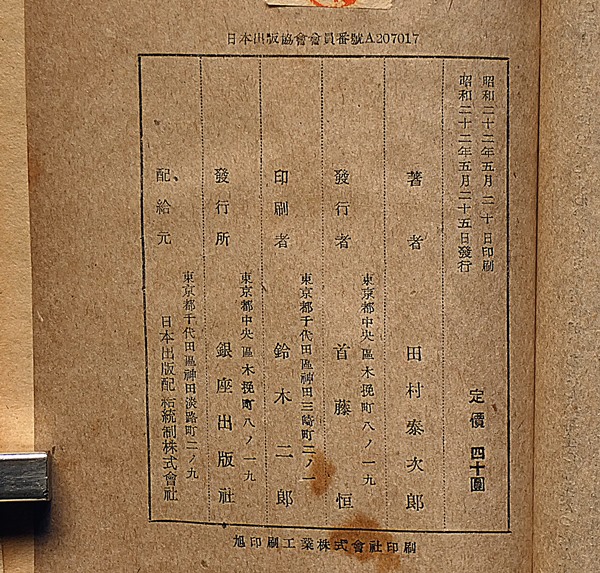 日本出版協會會員番號A207017
昭和二十二年五月二十日印刷
昭和二十二年五月二十五日發行
定價 四十圓
著者 田村泰次郎
東京都中央區木挽町八ノ一九
發行者 首藤恒
東京都千代田區神田三崎町二ノ一
印刷者 鈴木二郎
東京都中央區木挽町八ノ一九
發行所 銀座出版社
東京都千代田區神田淡路町二ノ九
配給元 日本出版配給統制株式會社
旭印刷工業株式會社印刷